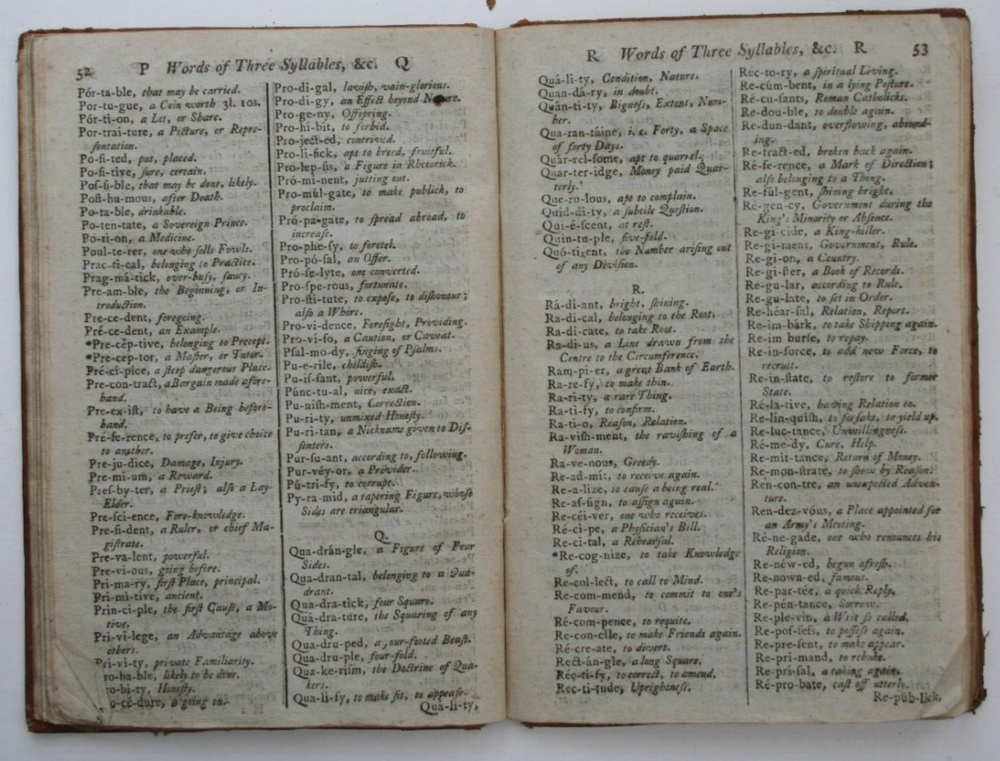 52 P Words of Three Syllables, &c. Q
Pór-ta-ble, that may be carried.
Por-tu-gue, a Coin worth 3l. 10s.
Pór-ti-on, a Lot, or Share.
Por-trai-ture, a Picture, or Repre-
sentation.
Po-ſi-ted, put, placed.
Po-ſi-tive, ſure, certain.
Poſ-ſi-ble, that may be done, likely.
Poſt-hu-mous, after Death.
Po-ta-ble, drinkable.
Po-ten-tate, a Sovereign Prince.
Po-ti-on, a Medicine.
Poul-te-rer, one who ſells Fowls.
Prac-ti-cal, belonging to Practice.
Prag-má-tick, over-buſy, ſaucy.
Pre-am-ble, the Beginning, or In-
troduction.
Pre-ce-dent, foregoing.
Pré-ce-dent, an Example.
*Pre-cép-tive, belonging to Precept.
*Pre-cep-tor, a Maſter, or Tutor.
Pré-ci-pice, a ſteep dangerous Place.
Pre-con-tract, a Bargain made afore-
hand.
Pre-ex-iſt, to have a Being before-
hand.
Pré-fe-rence, to prefer, to give choice
to another.
Pre-ju-dice, Damage, Injury.
Pre-mi-um, a Reward.
Preſ-by-ter, a Prieſt; alſo a Lay-
Elder.
Pre-ſci-ence, Fore-knowledge.
Pre-ſi-dent, a Ruler, or chief Ma-
giſtrate.
Pre-va-lent, powerful.
Pre-vi-ous, going before.
Pri-ma-ry, firſt Place, principal.
Pri-mi-tive, ancient.
Prin-ci-ple, the firſt Cauſe, a Mo-
tive.
Pri-vi-lege, an Advantage above
others.
Pri-vi-ty, private Familiarity.
ro-ba-ble, likely to be done.
ro-bi-ty, Honeſty.
o-cé-dure, a going on.
Pro-di-gal, laviſh, vain-glorious.
Pro-di-gy, an Effect beyond Nature.
Pro-ge-ny, Offspring.
Pro-hi-bit, to forbid.
Pro-ject-ed, contrived.
Pro-li-fick, apt to breed, fruitful.
Pro-lep-ſis, a Figure in Rhetorick.
Pró-mi-nent, jutting out.
Pro-mul-gate, to make publick, to
proclaim.
Pró-pa-gate, to ſpread abroad, to
increaſe.
Pro-phe-ſy, to foretel.
Pro-pó-ſal, an Offer.
Pró-ſe-lyte, one converted.
Pro-ſpe-rous, fortunate.
Pro-ſti-tute, to expoſe, to diſhonour;
alſo a Whore.
Pro-vi-dence, Foreſight, Providing.
Pro-ví-ſo, a Caution, or Caveat.
Pſal-mo-dy, ſinging of Pſalms.
Pu-e-rile, childiſh.
Pu-iſ-ſant, powerful.
Púnc-tu-al, nice, exact.
Pu-niſh-ment, Correction.
Pu-ri-ty, unmixed Honeſty.
Pu-ri-tan, a Nickname given to Diſ-
ſenters.
Pur-ſu-ant, according to, following.
Pur-véy-or, a Provider.
Pú-tri-fy, to corrupt.
Py-ra-mid, a tapering Figure, whoſe
Sides are triangular.
Q.
Qua-drán-gle, a Figure of Four
Sides.
Qua-dran-tal, belonging to a Qua-
drant.
Qua-dra-tick, four Square.
Qua-dra-ture, the Squaring of any
Thing.
Qua-dru-ped, a four-footed Beaſt.
Qua-dru-ple, four-fold.
Qua-ke-riſm, the Doctrine of Qua-
kers.
Qua-li-fy, to make fit, to appeaſe.
Quá-li-ty,
R Words of Three Syllables, &c. R 53
Quá-li-ty, Condition, Nature.
Quan-dá-ry, in doubt.
Quán-ti-ty, Bigneſs, Extent, Num-
ber.
Qua-ran-taine, i. e. Forty, a Space
of forty Days.
Quár-rel-ſome, apt to quarrel.
Quar-ter-idge, Money paid Quar-
terly.
Que-ru-lous, apt to complain.
Quid-di-ty, a ſubtile Queſtion.
Qui-é-ſcent, at reſt.
Quin-tu-ple, five-fold.
Quó-ti-ent, the Number ariſing out
of any Diviſion.
R.
Rá-di-ant, bright, ſhining.
Ra-di-cal, belonging to the Root.
Ra-di-cate, to take Root.
Ra-di-us, a Line drawn from the
Centre to the Circumference.
Ram-pi-er, a great Bank of Earth.
Ra-re-fy, to make thin.
Ra-ri-ty, a rare Thing.
Ra-ti-fy, to confirm.
Ra-ti-o, Reaſon, Relation.
Ra-viſh-ment, the raviſhing of a
Woman.
Ra-ve-nous, Greedy.
Re-ad-mit, to receive again.
Re-a-lize, to cauſe a being real.
Re-aſ-ſign, to aſſign again.
Re-céi-ver, one who receives.
Ré-ci-pe, a Phyſician's Bill.
Re-ci-tal, a Rehearſal.
*Re-cog-nize, to take Knowledge
of.
Re-col-lect, to call to Mind.
Re-com-mend, to commit to one's
Favour.
Ré-com-pence, to requite.
Re-con-cile, to make Friends again.
Ré-cre-ate, to divert.
Rect-án-gle, a long Square.
Réc-ti-fy, to correct, to amend.
Rec-ti-tude, Uprightneſs.
Réc-to-ry, a ſpiritual Living.
Re-cúm-bent, in a lying Poſture.
Ré-cu-ſants, Roman Catholicks.
Re-dou-ble, to double again.
Re-dun-dant, overflowing, abound-
ing.
Re-tract-ed, broken back again.
Ré-fe-rence, a Mark of Direction;
alſo belonging to a Thing.
Re-fúl-gent, ſhining bright.
Ré-gen-cy, Government during the
King's Minority or Abſence.
Re-gi-cide, a King-killer.
Re-gi-ment, Government, Rule.
Re-gi-on, a Country.
Re-gi-ſter, a Book of Records.
Re-gu-lar, according to Rule.
Re-gu-late, to ſet in Order.
Re-héar-ſal, Relation, Report.
Re-im-bárk, to take Shipping again.
Re-im burſe, to repay.
Re-in-force, to add new Force, to
recruit.
Re-in-ſtate, to reſtore to former
State.
Ré-la-tive, having Relation to.
Re-lín-quiſh, to forſake, to yield up.
Re-luc-tance, Unwillingneſs.
Ré-me-dy, Cure, Help.
Re-mit-tance, Return of Money.
Re-mon-ſtrate, to ſhew by Reaſon.
Ren-con-tre, an unexpected Adven-
ture.
Ren-dez-vóus, a Place appointed for
an Army's Meeting.
Ré-ne-gade, one who renounces his
Religion.
Re-néw-ed, begun afreſh.
Re-nown-ed, famous.
Re-par-tée, a quick Reply.
Re-pén-tance, Sorrow.
Re-ple-vin, a Writ ſo called.
Re-poſ-ſeſs, to poſſeſs again.
Re-pre-ſent, to make appear.
Re-pri-mand, to rebuke.
Re-prí-ſal, a taking again.
Ré-pro-bate, caſt off utterly.
Re-púb-lick,